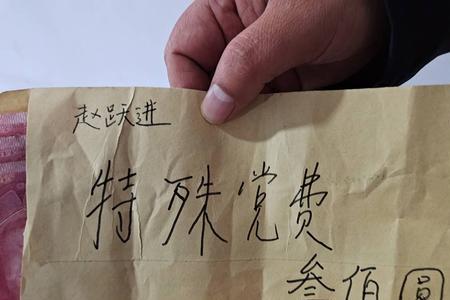 赵跃进
特殊党费
叁佰圆